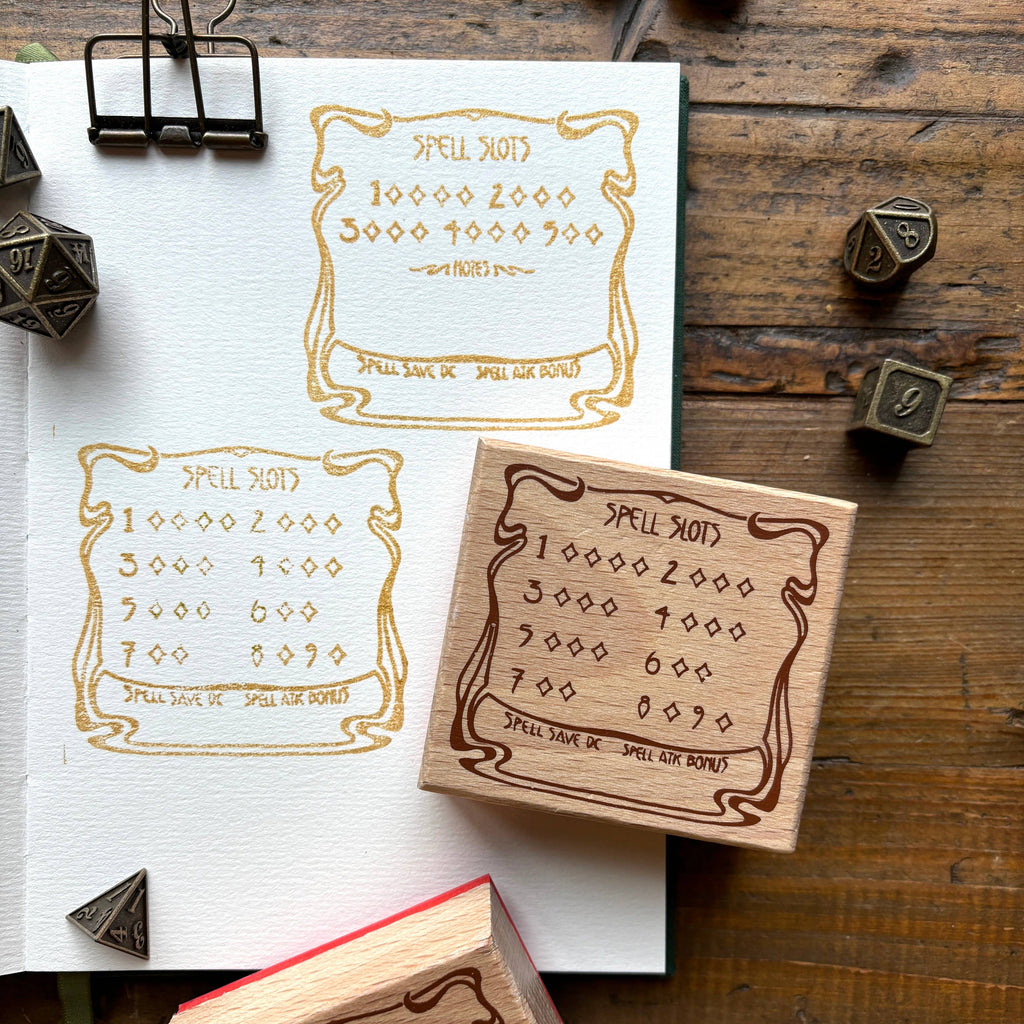 SPELL SLOTS
1◇◇◇◇ 2◇◇◇
3◇◇◇ 4◇◇◇ 5◇◇
NOTES
SPELL SAVE DC SPELL ATK BONUS
SPELL SLOTS
1 ◇◇◇◇ 2 ◇◇◇
3 ◇◇◇ 4 ◇◇◇
5 ◇◇◇ 6 ◇◇
7 ◇◇ 8 ◇ 9 ◇
SPELL SAVE DC SPELL ATK BONUS
SPELL SLOTS
1 ◇◇◇◇ 2 ◇◇◇
3 ◇◇◇ 4 ◇◇◇
5 ◇◇◇ 6 ◇◇
7 ◇◇ 8 ◇ 9 ◇
SPELL SAVE DC SPELL ATK BONUS
8
2
9
16
2
4